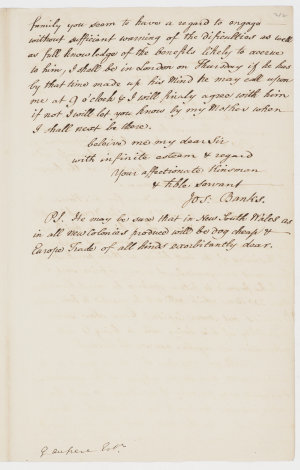 family you seem to have a regard to engage
without sufficient warning of the difficulties as well
as full knowledge of the benefits likely to accrue
to him, I shall be in London on Thursday if he has
by that time made up his Mind he may call upon
me at 9 o'clock & I will finaly agree with him
if not I will let you know by my Mother when
I shall next be there.
beleive me my dear Sir
with infinite esteem & regard
Your affectionate Kinsman
& Hble Servant
Jos: Banks.
P.S. He may be sure that in New South Wales as
in all new Colonies produce will be dog cheap &
Europe Trade of all kinds exorbitantly dear.
Esqr.